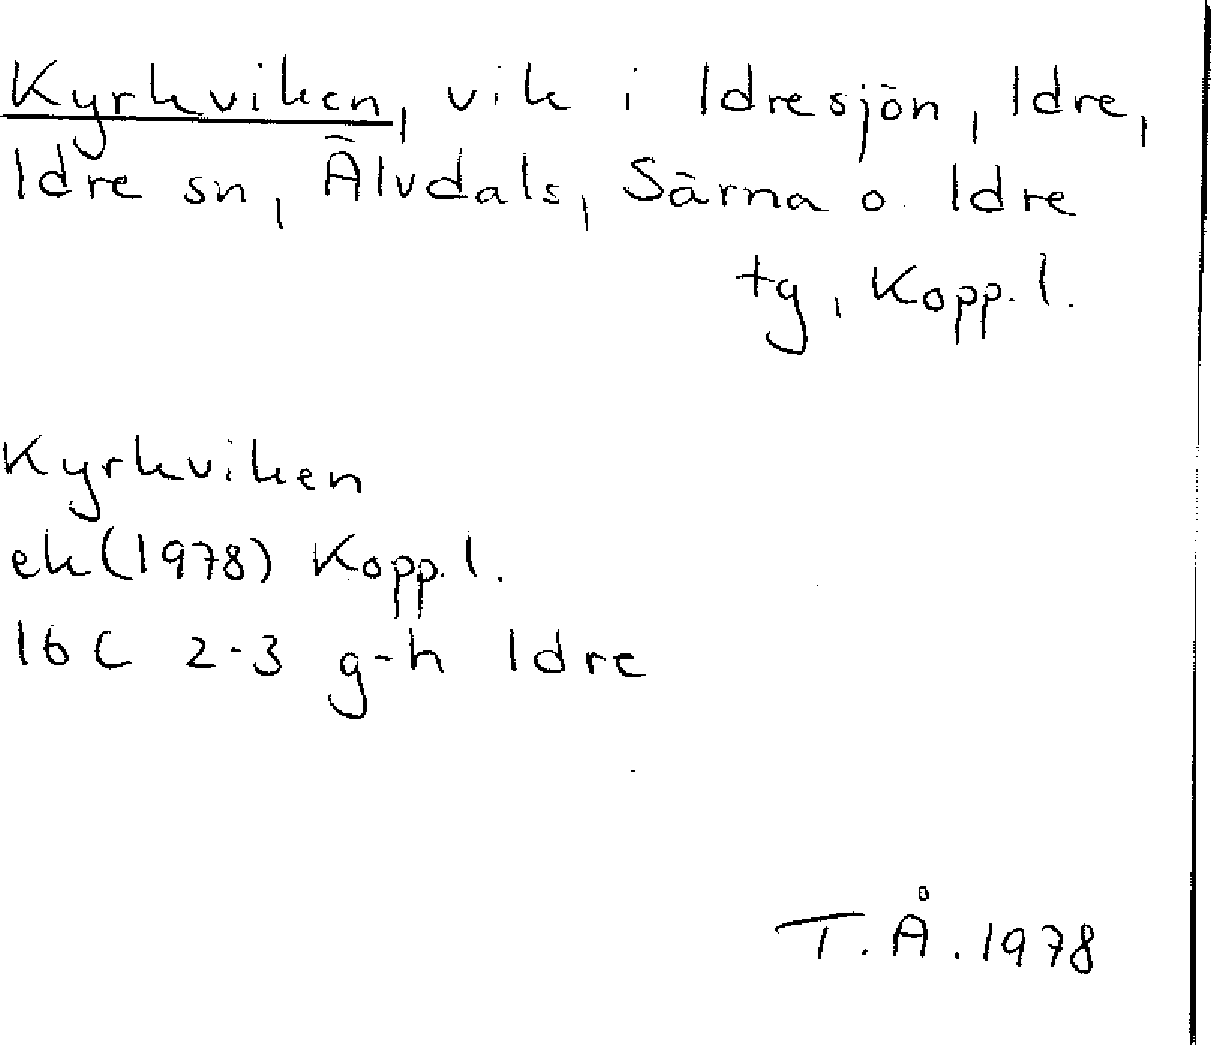 Kyrkviken, vik i Idresjön, Idre,
Idre sn, Älvdals, Särna o. Idre
tg, Kopp. l.
Kyrkviken
ek (1978) Kopp. l.
16 C 2-3 g-h Idre
T. Å. 1978